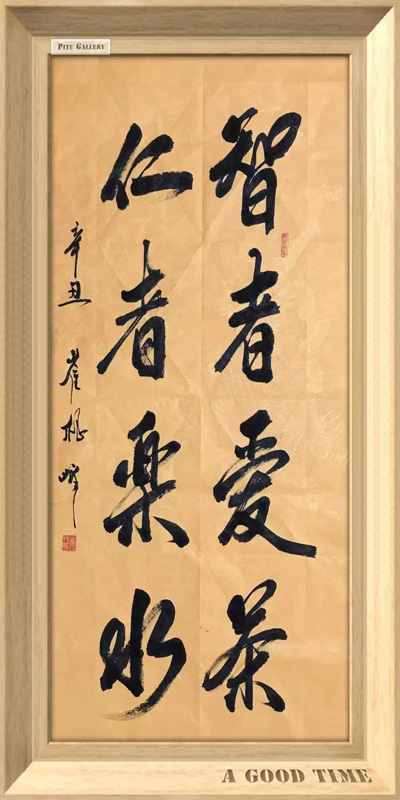 PITU GALLERY
智者爱茶
仁者樂水
辛丑 崔 峰
A GOOD TIME